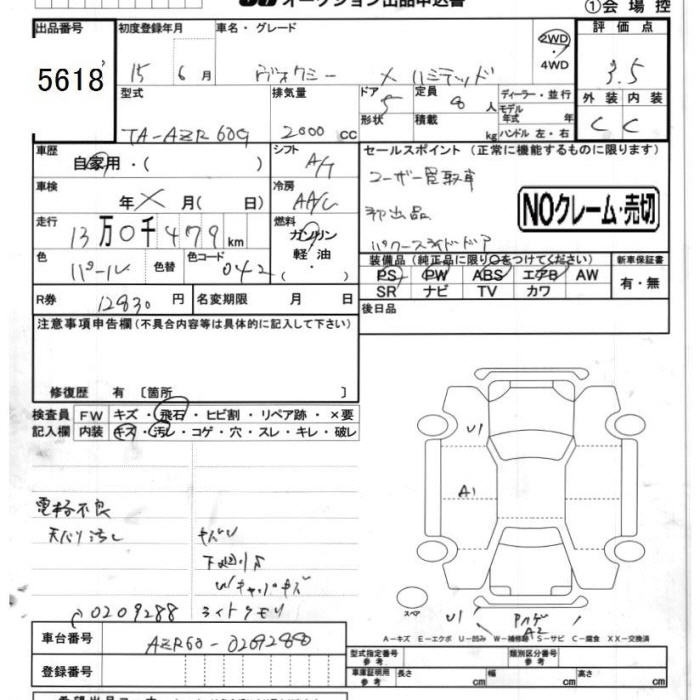 オークション出品申込書
①会場控
出品番号
5618
初度登録年月
15年 6月
車名・グレード
ヴォクシー X リミテッド
2WD
・
4WD
評価点
3.5
外装 内装
C C
型式
TA-AZR60G
排気量
2000 CC
ドア
5
形状
定員
8 人
積載
kg
ディーラー・並行
モデル年式 年式
ハンドル 左・右
車歴
自家用・( )
シフト
A/T
車検
年 × 月( 日)
冷房
AAC
走行
13万0千479 km
燃料
ガソリン
・軽油・
( )
色
パール
色替
色コード
042
R券
12830 円
名変期限 月 日
セールスポイント(正常に機能するものに限ります)
ユーザー買取車
初出品
パワースライドドア
NOクレーム・売切
装備品(純正品に限り○をつけてください)
PS PW ABS エアB AW
SR ナビ TV カワ
新車保証書
有・無
後日品
注意事項申告欄(不具合内容等は具体的に記入して下さい)
修復歴 有〔箇所 〕
検査員記入欄
FW キズ・飛石・ヒビ割・リペア跡・×要
内装 キズ・汚レ・コゲ・穴・スレ・キレ・破レ
電格不良
天バリ汚レ
下廻りサ
Wキャップキズ
0209288 ライトクモリ
U1
A1
U1
A2
スペア
A-キズ E-エクボ U-凹み W-補修跡 S-サビ C-腐食 XX-交換済
車台番号
AZR60-0209288
登録番号
型式指定番号 参考
類別区分番号 参考
車庫証明用 参考
長さ cm 幅 cm 高さ cm